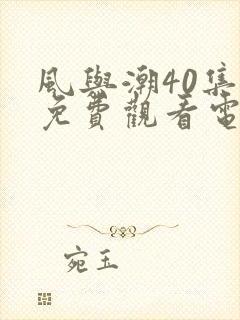 風與潮40集
免費觀看電
宛玉